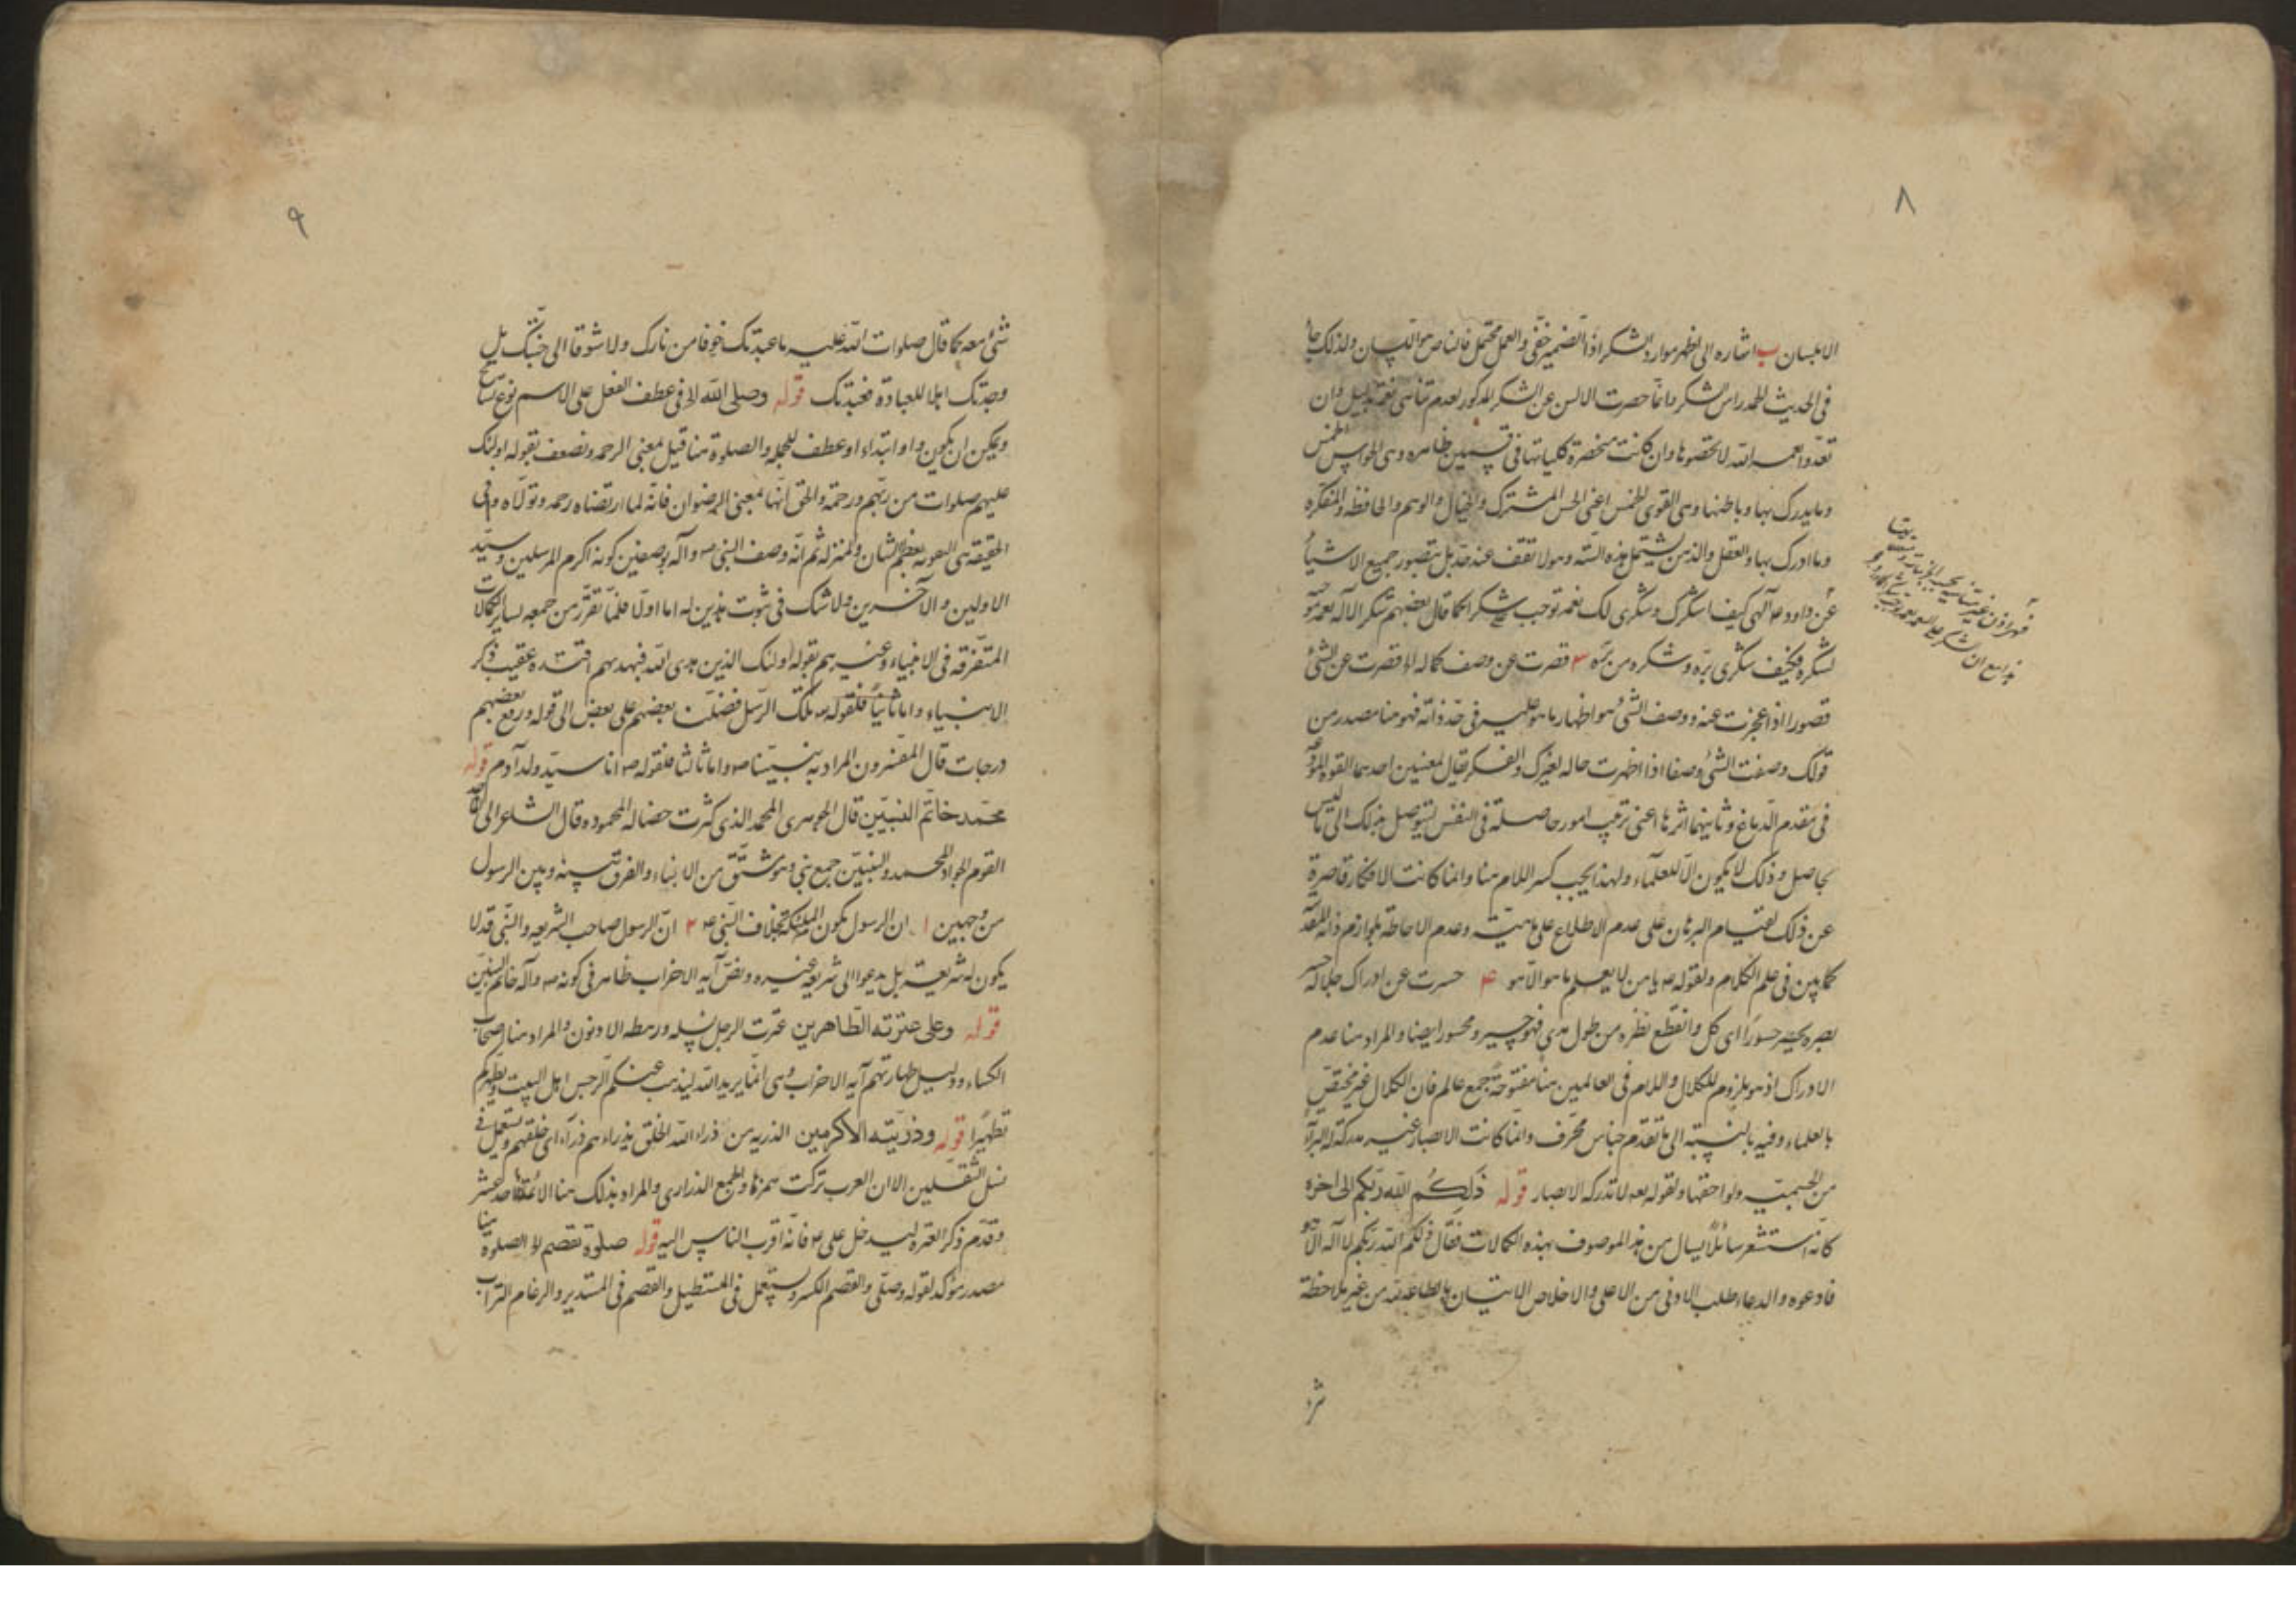 ٨
الا باللسان ب اشارة الى اظهر موارد الشكر اذ الضمير خفى والعمل محتمل فالناص هو اللسان ولذلك جاء
فى الحديث الحمد راس الشكر وانما حصرت الالسن عن الشكر المذكور لعدم تناهى نعمه بدليل وان
تعدوا نعمة الله لا تحصوها وان كانت منحصرة كلياتها فى قسمين ظاهره وهى الحواس الخمس
وما يدرك بها وباطنها وهى القوى الخمس اعنى الحس المشترك والخيال والوهم والحافظه والمتفكره
وما ادرك بها والعقل والذهن يشتمل هذه الستة وهو لا تقف عند حد بل يتصور جميع الاشياء
عن داود ع الهى كيف اشكرك وشكرى لك نعمه توجب شكرا كما قال بعضهم شكر الاله نعمه
لشكره فكيف شكرى بره وشكره من بره ٣ قصرت عن وصف كماله الخ قصرت عن الشئ
قصورا اذا عجزت عنه ووصف الشئ هو اظهار ما هو عليه فى حد ذاته فهو هنا مصدر من
قولك وصفت الشئ وصفا اذا اظهرت حاله لغيرك والفكر يقال لمعنيين احدهما القوة المودعة
فى مقدم الدماغ وثانيهما اثرها اعنى ترتيب امور حاصلة فى النفس ليتوصل بذلك الى ما ليس
بحاصل وذلك لا يكون الا للعلماء ولهذا يجب كسر اللام هنا وانما كانت الافكار قاصرة
عن ذلك لقيام البرهان على عدم الاطلاع على ماهيته وعدم الاحاطة بلوازم ذاته المقدسة
كما بين فى علم الكلام ولقوله ع يا من لا يعلم ما هو الا هو ٤ حسرت عن ادراك جلاله حسر
بصره يحسر حسورا اى كل وانقطع نظره من طول مدى فهو حسير ومحسور ايضا والمراد هنا عدم
الادراك اذ هو ملزوم للكلال واللام فى العالمين هنا مفتوحة جمع عالم فان الكلال غير مختص
بالعلماء وفيه بالنسبة الى ما تقدم جناس محرف وانما كانت الابصار غير مدركة له لبراءته
من الجسمية ولواحقها ولقوله تعالى لا تدركه الابصار قوله ذلكم الله ربكم الى اخره
كانه استشعر سائلا يسال من هذا الموصوف بهذه الكمالات فقال ذلكم الله ربكم لا اله الا هو
فادعوه والدعاء طلب الادنى من الاعلى والاخلاص الاتيان بالطاعة له من غير ملاحظة
٩
شئ معه كما قال صلوات الله عليه ما عبدتك خوفا من نارك ولا شوقا الى جنتك بل
وجدتك اهلا للعبادة فعبدتك قوله وصلى الله الخ فى عطف الفعل على الاسم نوع تسامح
ويمكن ان يكون واو ابتداء او عطف للجملة والصلوة هنا قيل بمعنى الرحمه ونضعف بقوله اولئك
عليهم صلوات من ربهم ورحمة والحق انها بمعنى الرضوان فانه لما ارتضاه رحمه وتولاه وفى
الحقيقة هى العون بعظم الشان والمنزلة ثم انه وصف النبى ص وآله بوصفين كونه اكرم المرسلين وسيد
الاولين والآخرين ولا شك فى ثبوت هذين له اما اولا فلما تقرر من جمعه لساير الكمالات
المتفرقه فى الانبياء وغيرهم بقوله اولئك الذين هدى الله فبهديهم اقتده عقيب ذكر
الانبياء واما ثانيا فلقوله تلك الرسل فضلنا بعضهم على بعض الى قوله ورفع بعضهم
درجات قال المفسرون المراد به نبينا ص واما ثالثا فلقوله ص انا سيد ولد آدم قوله
محمد خاتم النبيين قال الجوهرى المحمد الذى كثرت خصاله المحموده قال الشاعر الى الماجد
القوم الجواد المحمد والنبيين جمع نبى وهو مشتق من الانباء والفرق بينه وبين الرسول
من وجهين ١ ان الرسول يكون للملئكة بخلاف النبى ع ٢ ان الرسول صاحب الشريعه والنبى قد لا
يكون له شريعة بل يدعوا الى شريعة غيره ونص آيه الاحزاب ظاهر فى كونه ص وآله خاتم النبيين
قوله وعلى عترته الطاهرين عترت الرجل نسله ورهطه الادنون والمراد هنا اصحاب
الكساء ودليل طهارتهم آيه الاحزاب وهى انما يريد الله ليذهب عنكم الرجس اهل البيت ويطهركم
تطهيرا قوله وذريته الاكرمين الذريه من ذراء الله الخلق يذراءهم ذرآء اى خلقهم ويستعمل فى
نسل الثقلين الا ان العرب تركت همزها والجمع الذرارى والمراد بذلك هنا الائمة الاحد عشر
وقدم ذكر العترة ليدخل على ع فانه اقرب الناس اليه قوله صلوة تقصم الخ الصلوة هنا
مصدر مؤكد لقوله وصلى والقصم الكسر ويستعمل فى المستطيل والفصم فى المستدير والرغام التراب